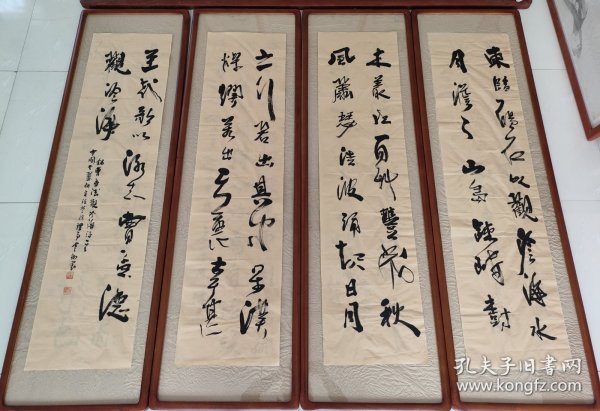 東臨碣石以觀滄海水
何澹々山島竦峙樹
木叢生百草豐茂秋
風蕭瑟洪波涌起日月
之行若出其中星漢
燦爛若出其裏幸甚
至哉歌以詠志曹孟德
觀滄海
孔夫子旧书网
www.kongfz.com